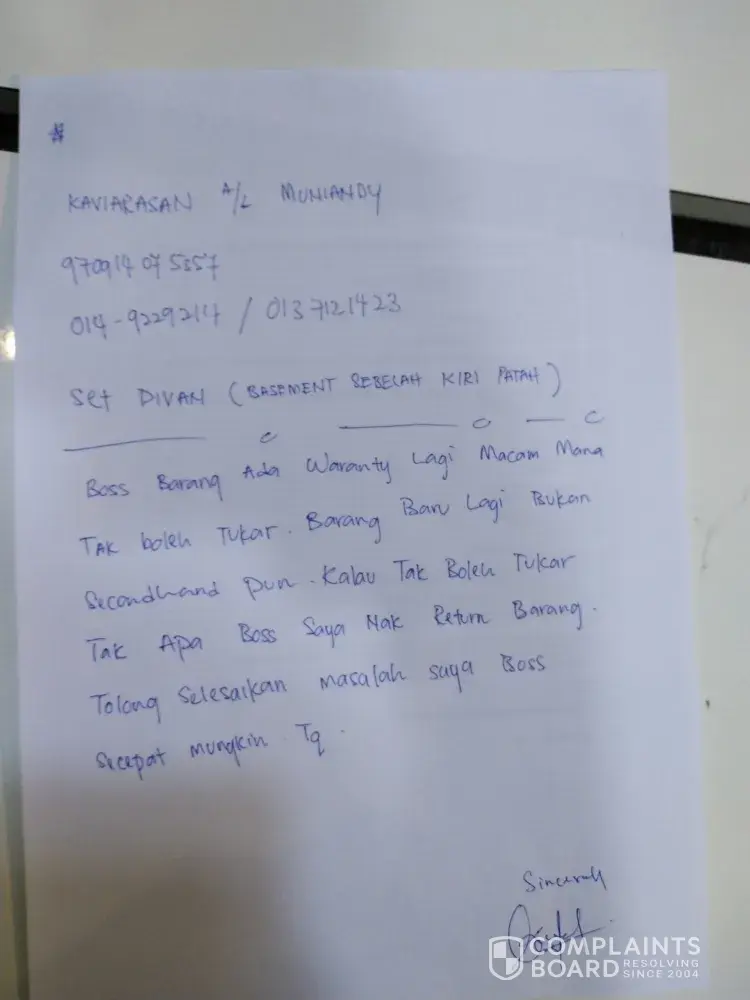 #
KAVIARASAN A/L MUNIANDY
970914 07 5357
014-9229214 / 013 7121423
Set DIVAN (BASEMENT SEBELAH KIRI PATAH)
Boss Barang Ada Waranty Lagi Macam Mana
TAK boleh Tukar. Barang Baru Lagi Bukan
Secondhand pun. Kalau Tak Boleh Tukar
Tak Apa Boss Saya Nak Return Barang.
Tolong Selesaikan masalah saya Boss
Secepat mungkin. Tq.
COMPLAINTS
BOARD RESOLVING
SINCE 2004